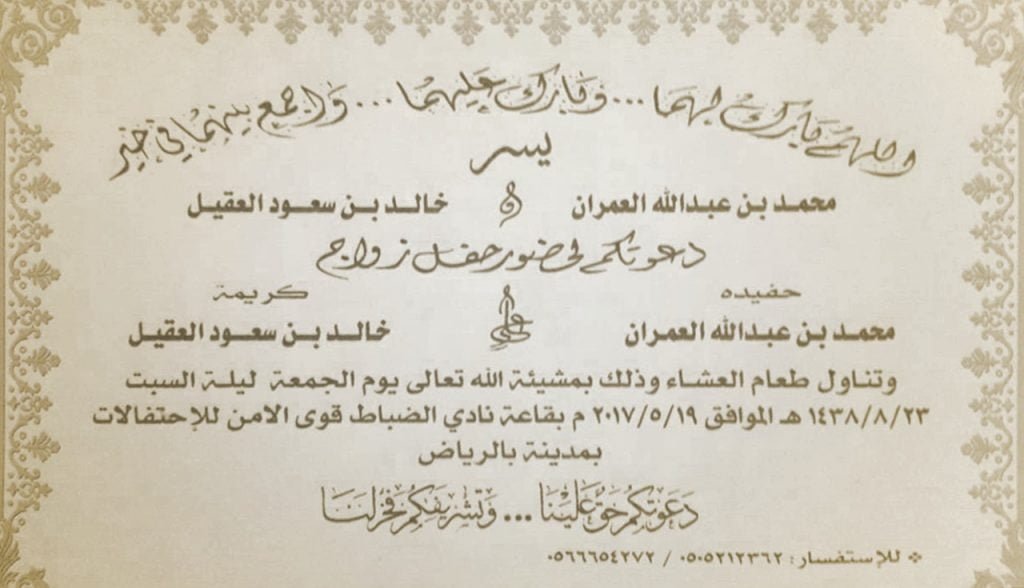 اللهم بارك لهما ... وبارك عليهما ... واجمع بينهما في خير
يسر
محمد بن عبدالله العمران و خالد بن سعود العقيل
دعوتكم لحضور حفل زواج
حفيده كريمة
محمد بن عبدالله العمران على خالد بن سعود العقيل
وتناول طعام العشاء وذلك بمشيئة الله تعالى يوم الجمعة ليلة السبت
١٤٣٨/٨/٢٣ هـ الموافق ٢٠١٧/٥/١٩ م بقاعة نادي الضباط قوى الامن للإحتفالات
بمدينة بالرياض
دَعَوتكُم حَقٌ عَلَيْنَا ... وَتَشْرِيفكُم فَخرٌ لَنَا
للإستفسار : ٠٥٠٥٢١٢٣٦٢ / ٠٥٦٦٦٥٤٢٧٢